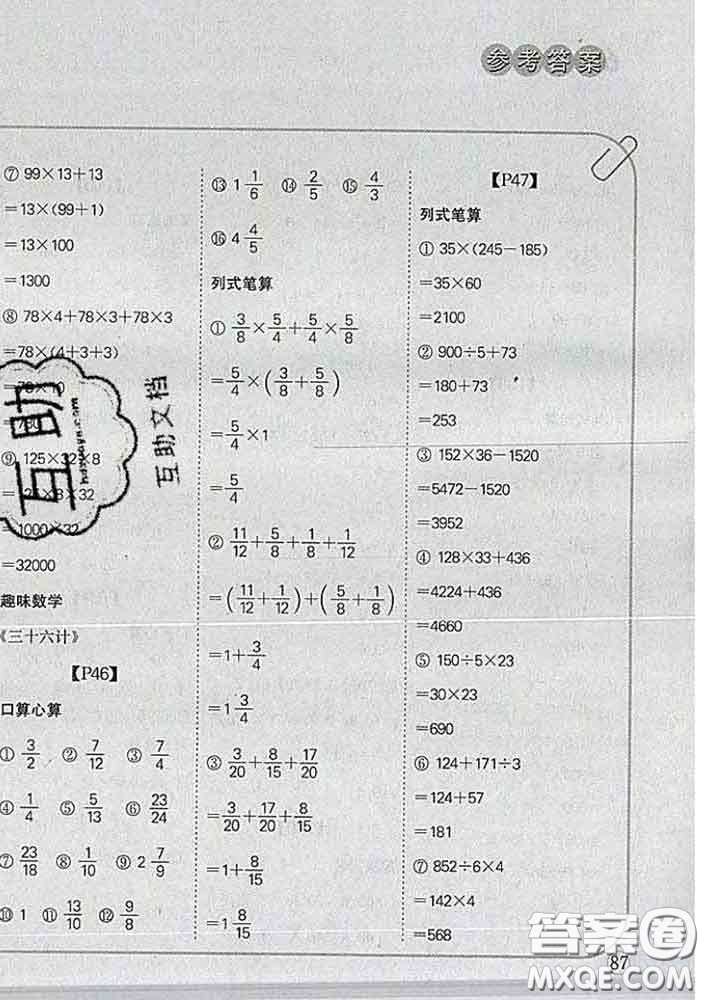 参考答案
⑦ 99×13+13
=13×(99+1)
=13×100
=1300
⑧ 78×4+78×3+78×3
=78×(4+3+3)
=78×10
=780
⑨ 125×32×8
=125×8×32
=1000×32
=32000
趣味数学
《三十六计》
【P46】
口算心算
① 3/2 ② 7/12 ③ 7/4
④ 1/4 ⑤ 5/13 ⑥ 23/24
⑦ 23/18 ⑧ 1/10 ⑨ 2 7/9
⑩ 1 ⑪ 13/10 ⑫ 9/8
⑬ 1 1/6 ⑭ 2/5 ⑮ 4/3
⑯ 4 4/5
列式笔算
① 3/8×5/4+5/4×5/8
=5/4×(3/8+5/8)
=5/4×1
=5/4
② 11/12+5/8+1/8+1/12
=(11/12+1/12)+(5/8+1/8)
=1+3/4
=1 3/4
③ 3/20+8/15+17/20
=3/20+17/20+8/15
=1+8/15
=1 8/15
【P47】
列式笔算
① 35×(245-185)
=35×60
=2100
② 900÷5+73
=180+73
=253
③ 152×36-1520
=5472-1520
=3952
④ 128×33+436
=4224+436
=4660
⑤ 150÷5×23
=30×23
=690
⑥ 124+171÷3
=124+57
=181
⑦ 852÷6×4
=142×4
=568
87
互助
互助文档
答案圈
MXQE.COM